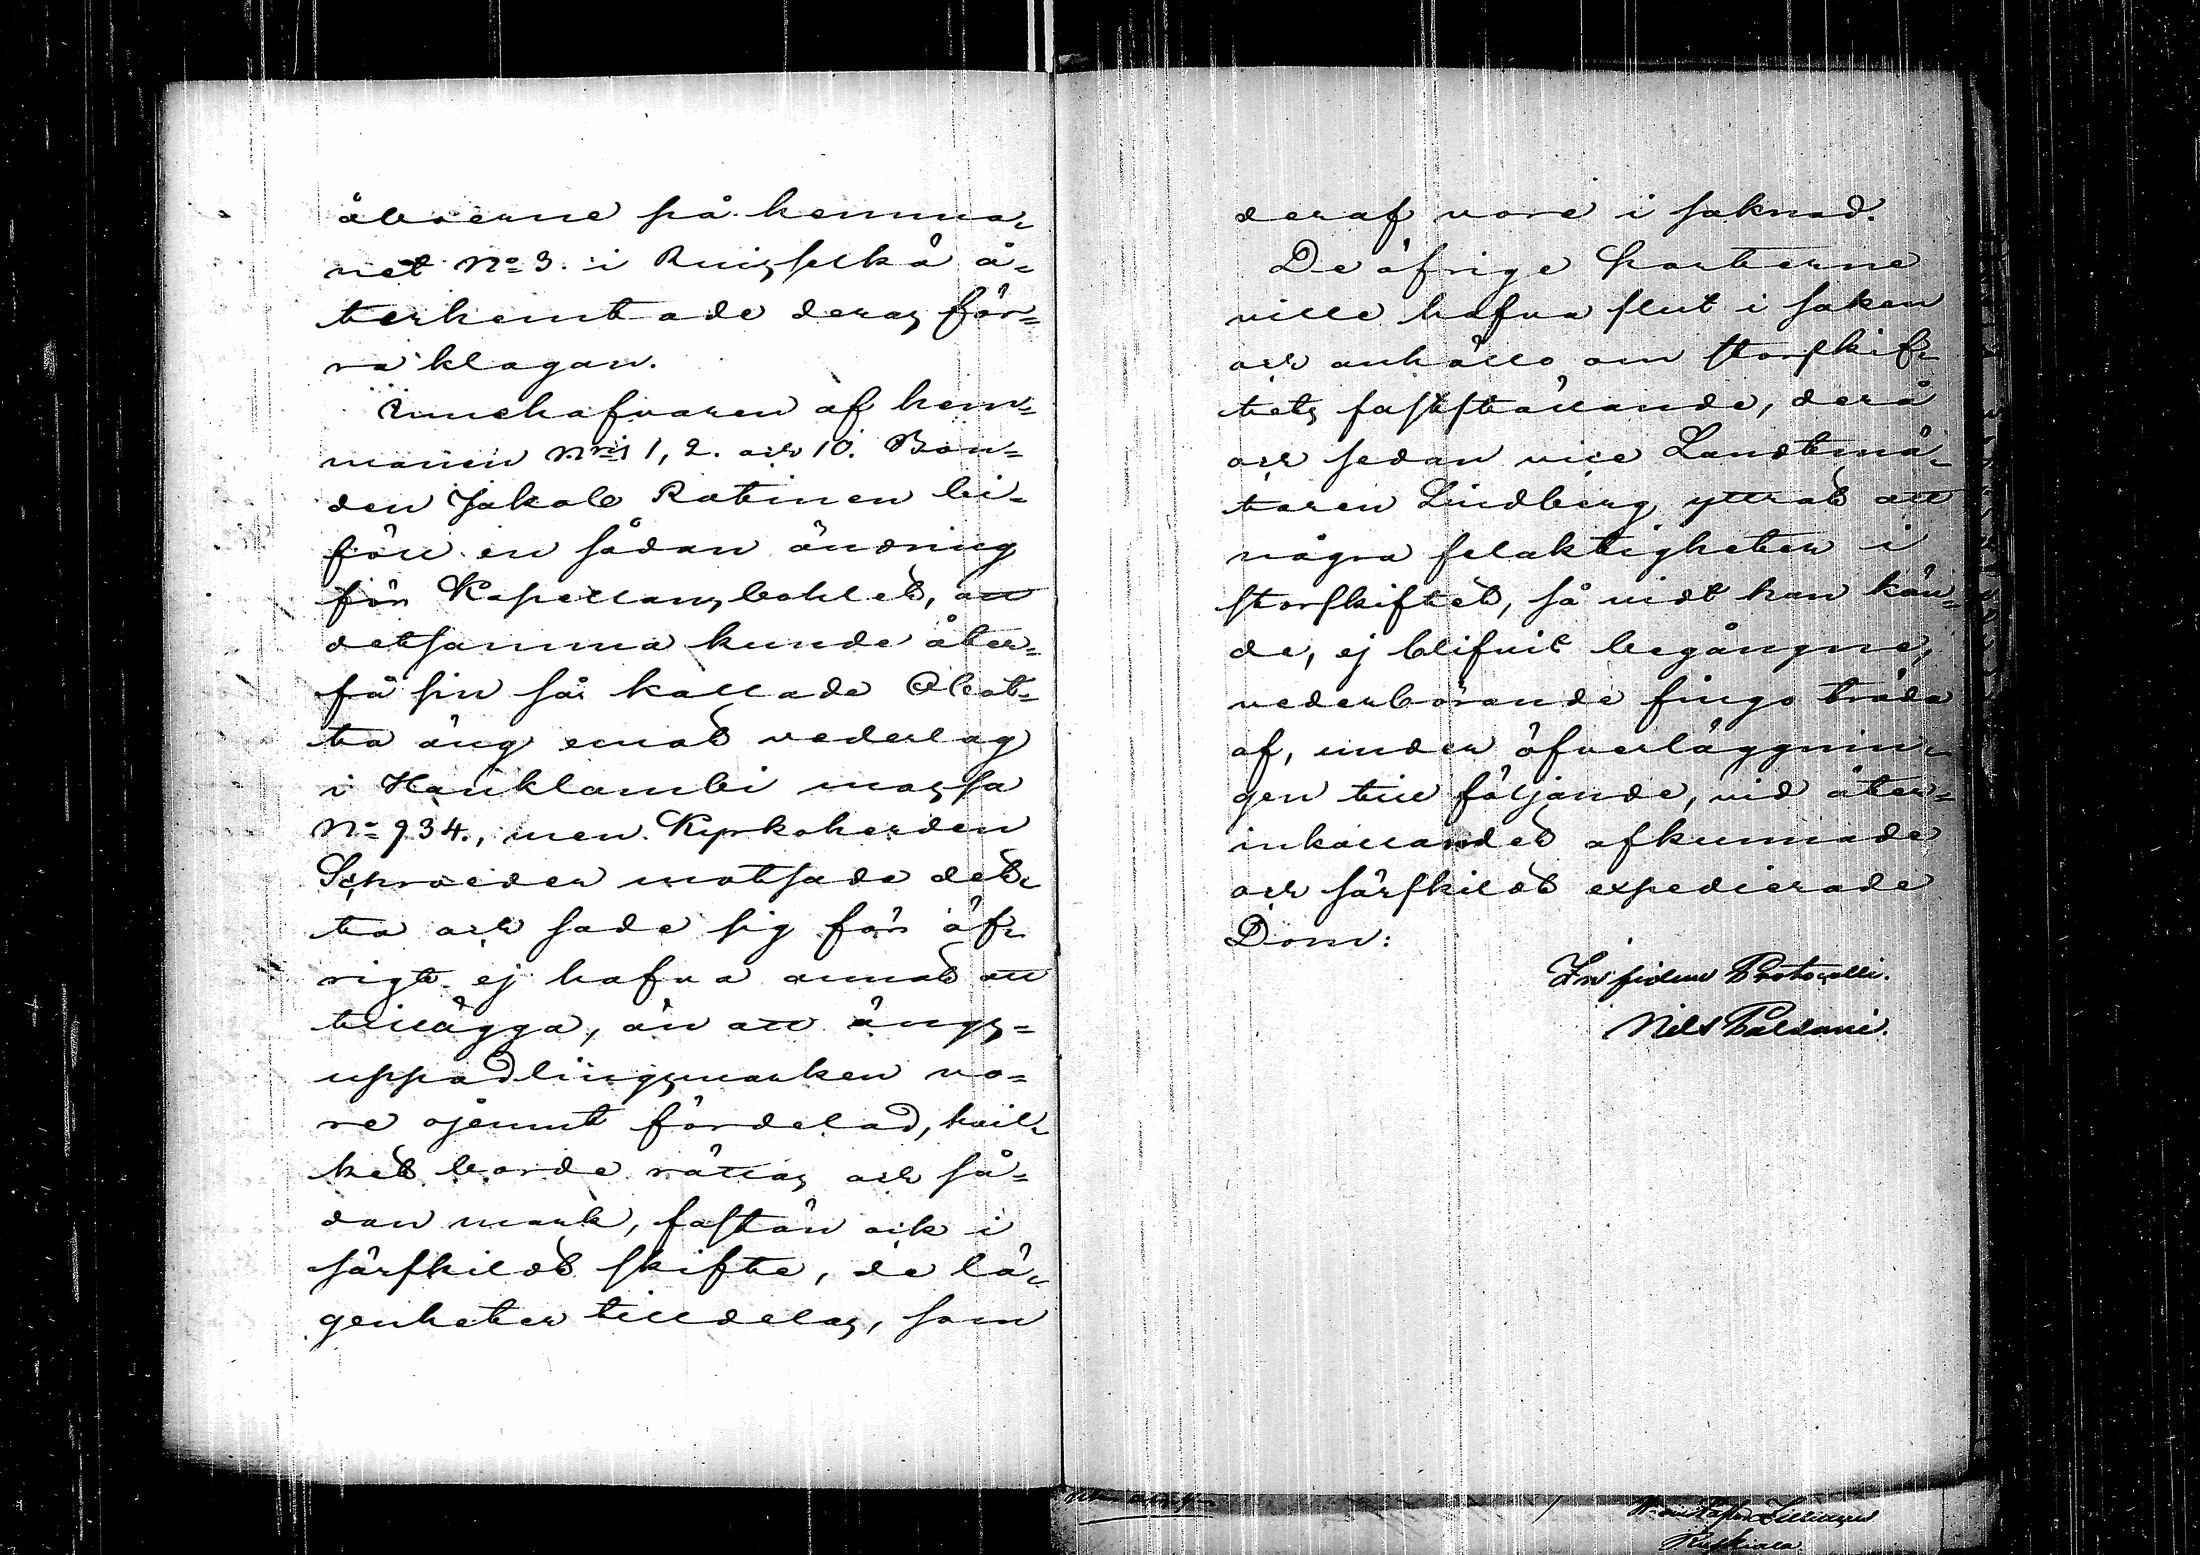 åboerne på hemma-
net No 3. i Ruisselkä å-
terhemtade deras för-
ra klagan.
Innehafvaren af hem-
manen Nris 1, 2. och 10. Bon-
den Jakob Ratinen bi-
föll en sådan ändring
för Kapellansbohlet, att
detsamma kunde åter-
få sin så kallade Aleat-
ta äng emot vederlag
i Hauklambi mossa
No 934., men Kyrkoherden
Schroeder motsade det-
ta och sade sig för öf-
rigt ej hafva annat att
tillägga, än att ängs-
uppodlingsmarken vo-
re ojemnt fördelad, hvil-
ket borde rättas och så-
dan mark, fastän ock i
särskildt skifte, de lä-
genheter tilldelas, som
deraf vore i saknad.
De öfrige Parterne
ville hafva slut i saken
och anhöllo om storskif-
tets fastställande, derå
och sedan vice Landtmä-
taren Lindberg yttrat att
några felaktigheter i
storskiftet, så vidt han kän-
de, ej blifvit begångne,
vederbörande fingo träda
af, under öfverläggnin-
gen till följande, vid åter-
inkallandet afkunnade
och särskildt expedierade
Dom:
In fidem Protocolli.
Nils Paldani.